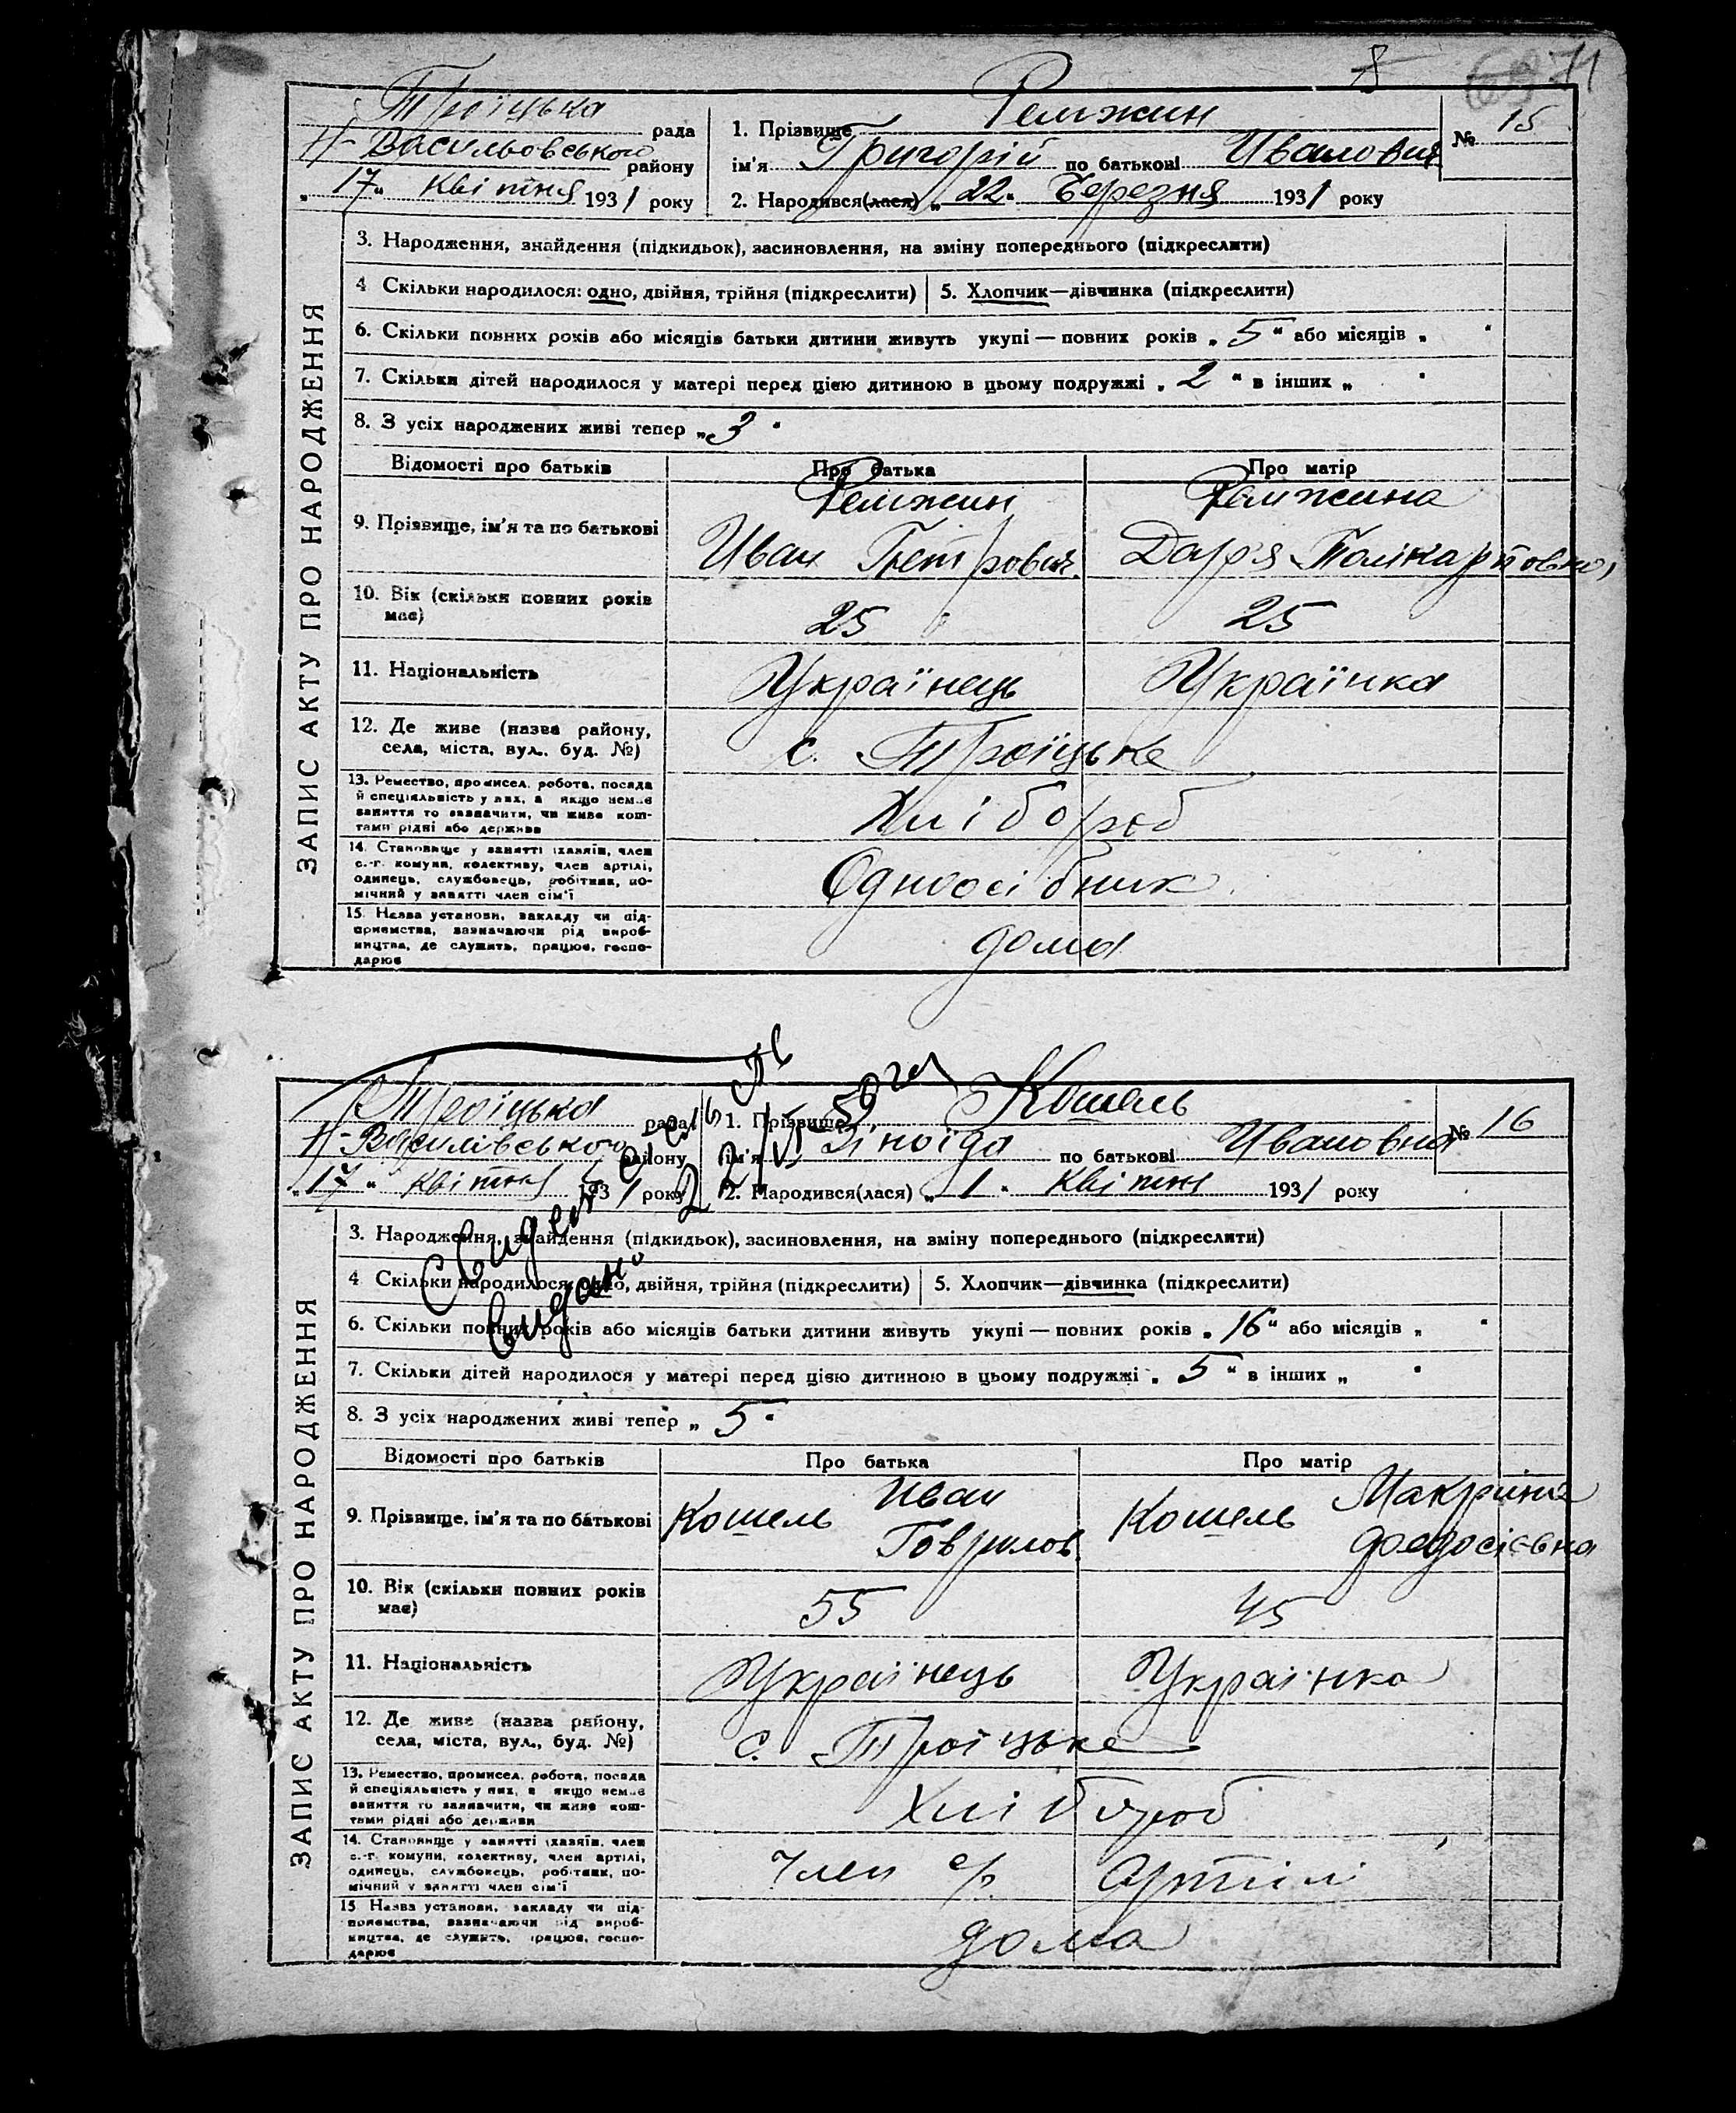 71
Троїцька рада
Н-Васильовського району
„17" квітня 1931 року
1. Прізвище Ремжин
ім'я Григорій по батькові Иванович
2. Народився(лася) „22" березня 1931 року
№ 15
ЗАПИС АКТУ ПРО НАРОДЖЕННЯ
3. Народження, знайдення (підкидьок), засиновлення, на зміну попереднього (підкреслити)
4 Скільки народилося: одно, двійня, трійня (підкреслити) 5. Хлопчик—дівчинка (підкреслити)
6. Скільки повних років або місяців батьки дитини живуть укупі — повних років „5" або місяців „ "
7. Скільки дітей народилося у матері перед цією дитиною в цьому подружжі „2" в інших „ "
8. З усіх народжених живі тепер „3"
Відомості про батьків Про батька Про матір
9. Прізвище, ім'я та по батькові
Ремжин Ремжина
Иван Петрович Дар'я Полікарповна
10. Вік (скільки повних років має) 25 25
11. Національність Українець Українка
12. Де живе (назва району, села, міста, вул., буд. №) с. Троїцьке
13. Ремество, промисел, робота, посада й спеціяльність у них, а якщо немає заняття то зазначити, чи живе коштами рідні або держави Хлібороб
14. Становище у занятті (хазяїн, член с.-г. комуни, колективу, член артілі, одинець, службовець, робітник, помічний у занятті член сім'ї Одноосібник
15. Назва установи, закладу чи підприємства, зазначаючи рід виробництва, де служить, працює, господарює дома
Троїцька рада
Н-Василівського району
„17" квітня 1931 року
1. Прізвище Кошель
ім'я Зіноїда по батькові Ивановна
2. Народився(лася) „1" квітня 1931 року
№ 16
видано
ЗАПИС АКТУ ПРО НАРОДЖЕННЯ
3. Народження, знайдення (підкидьок), засиновлення, на зміну попереднього (підкреслити)
4 Скільки народилося: одно, двійня, трійня (підкреслити) 5. Хлопчик—дівчинка (підкреслити)
6. Скільки повних років або місяців батьки дитини живуть укупі — повних років „16" або місяців „ "
7. Скільки дітей народилося у матері перед цією дитиною в цьому подружжі „5" в інших „ "
8. З усіх народжених живі тепер „5"
Відомості про батьків Про батька Про матір
9. Прізвище, ім'я та по батькові
Кошель Иван Гаврилов. Кошель Макрина Федосієвна
10. Вік (скільки повних років має) 55 45
11. Національність Українець Українка
12. Де живе (назва району, села, міста, вул., буд. №) с. Троїцьке
13. Ремество, промисел, робота, посада й спеціяльність у них, а якщо немає заняття то зазначити, чи живе коштами рідні або держави Хлібороб
14. Становище у занятті (хазяїн, член с.-г. комуни, колективу, член артілі, одинець, службовець, робітник, помічний у занятті член сім'ї Член с/г Артілі
15 Назва установи, закладу чи підприємства, зазначаючи рід виробництва, де служить, працює, господарює дома